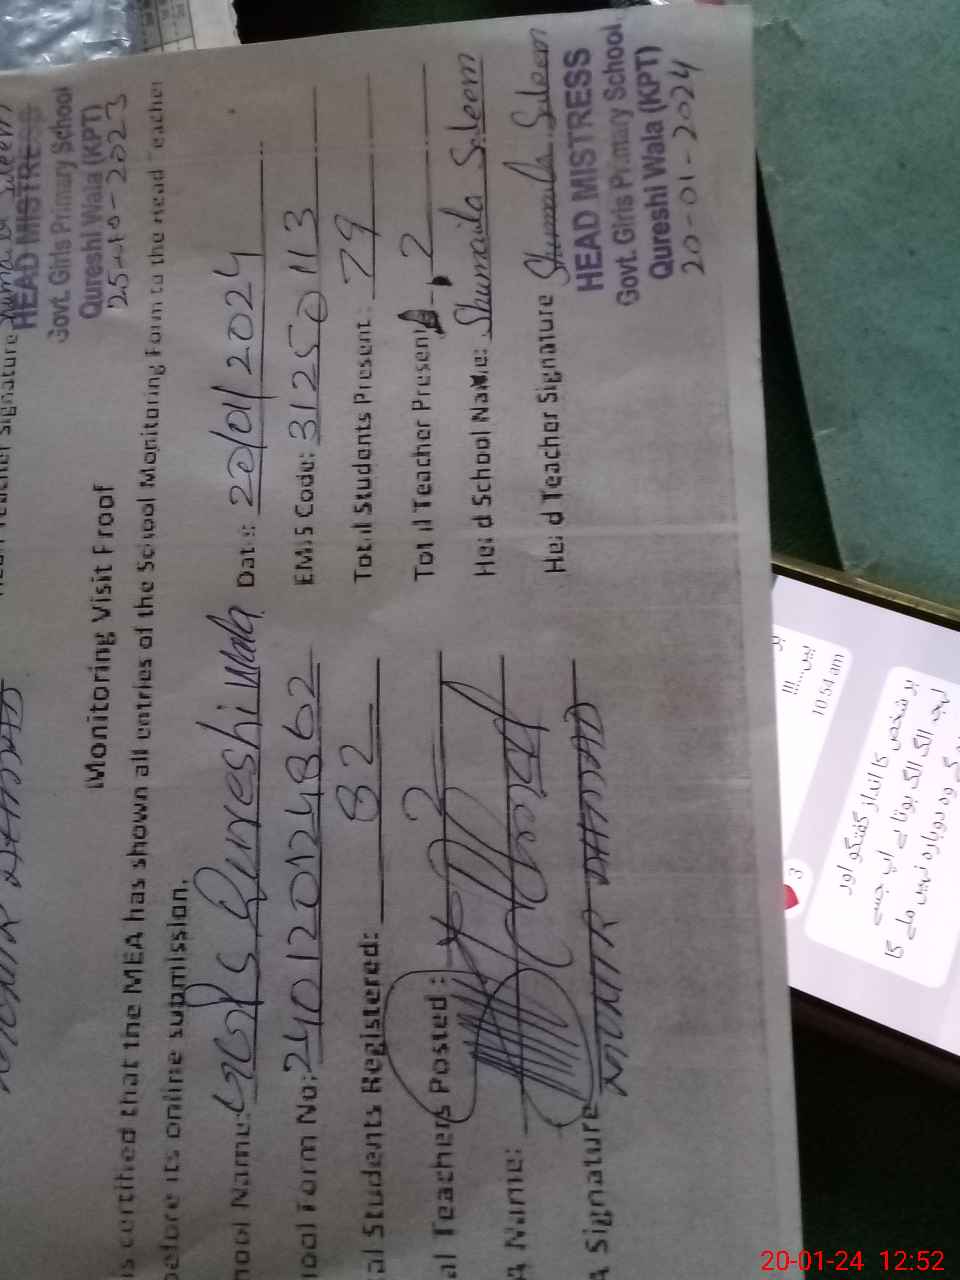 HEAD MISTRESS
Govt. Girls Primary School
Qureshi Wala (KPT)
25-10-2023
Monitoring Visit Proof
is certified that the MEA has shown all entries of the School Monitoring Form to the Head Teacher
before its online submission.
hool Name: GGPS Qureshi Wala Date: 20/01/2024
hool Form No: 240120124862 EMIS Code: 31250113
tal Students Registered: 82 Total Students Present: 79
al Teachers Posted: 2 Total Teacher Present: 2
A Name: Head School Name: Shumaila Saleem
A Signature Head Teacher Signature Shumaila Saleem
HEAD MISTRESS
Govt. Girls Primary School
Qureshi Wala (KPT)
20-01-2024
10:51 am
ہر شخص کا انداز گفتگو اور
لہجہ الگ الگ ہوتا ہے اپ جسے
وہ دوبارہ نہیں ملے گا
3
20-01-24 12:52